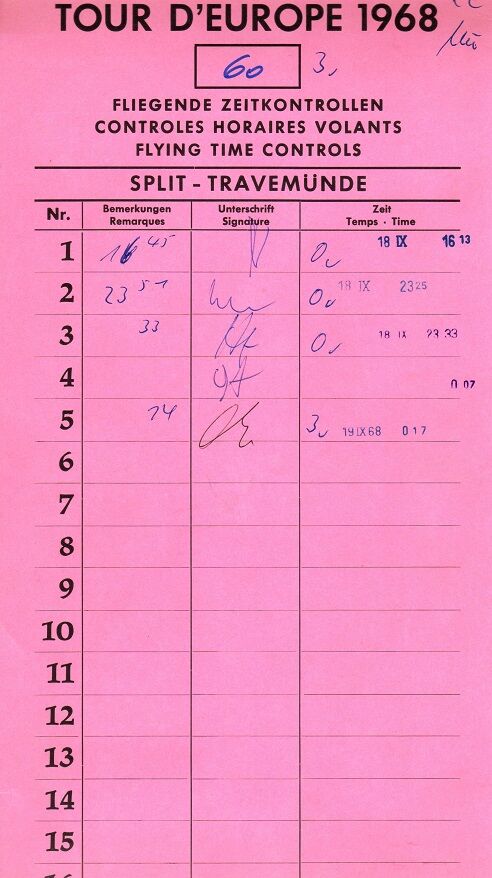 TOUR D'EUROPE 1968
60 3,
FLIEGENDE ZEITKONTROLLEN
CONTROLES HORAIRES VOLANTS
FLYING TIME CONTROLS
SPLIT - TRAVEMÜNDE
Nr. Bemerkungen Unterschrift Zeit
Remarques Signature Temps · Time
1 16 45 0, 18 IX 16 13
2 23 51 0, 18 IX 23 25
3 33 0, 18 IX 23 33
4 0 07
5 14 3, 19 IX 68 0 17
6
7
8
9
10
11
12
13
14
15
16